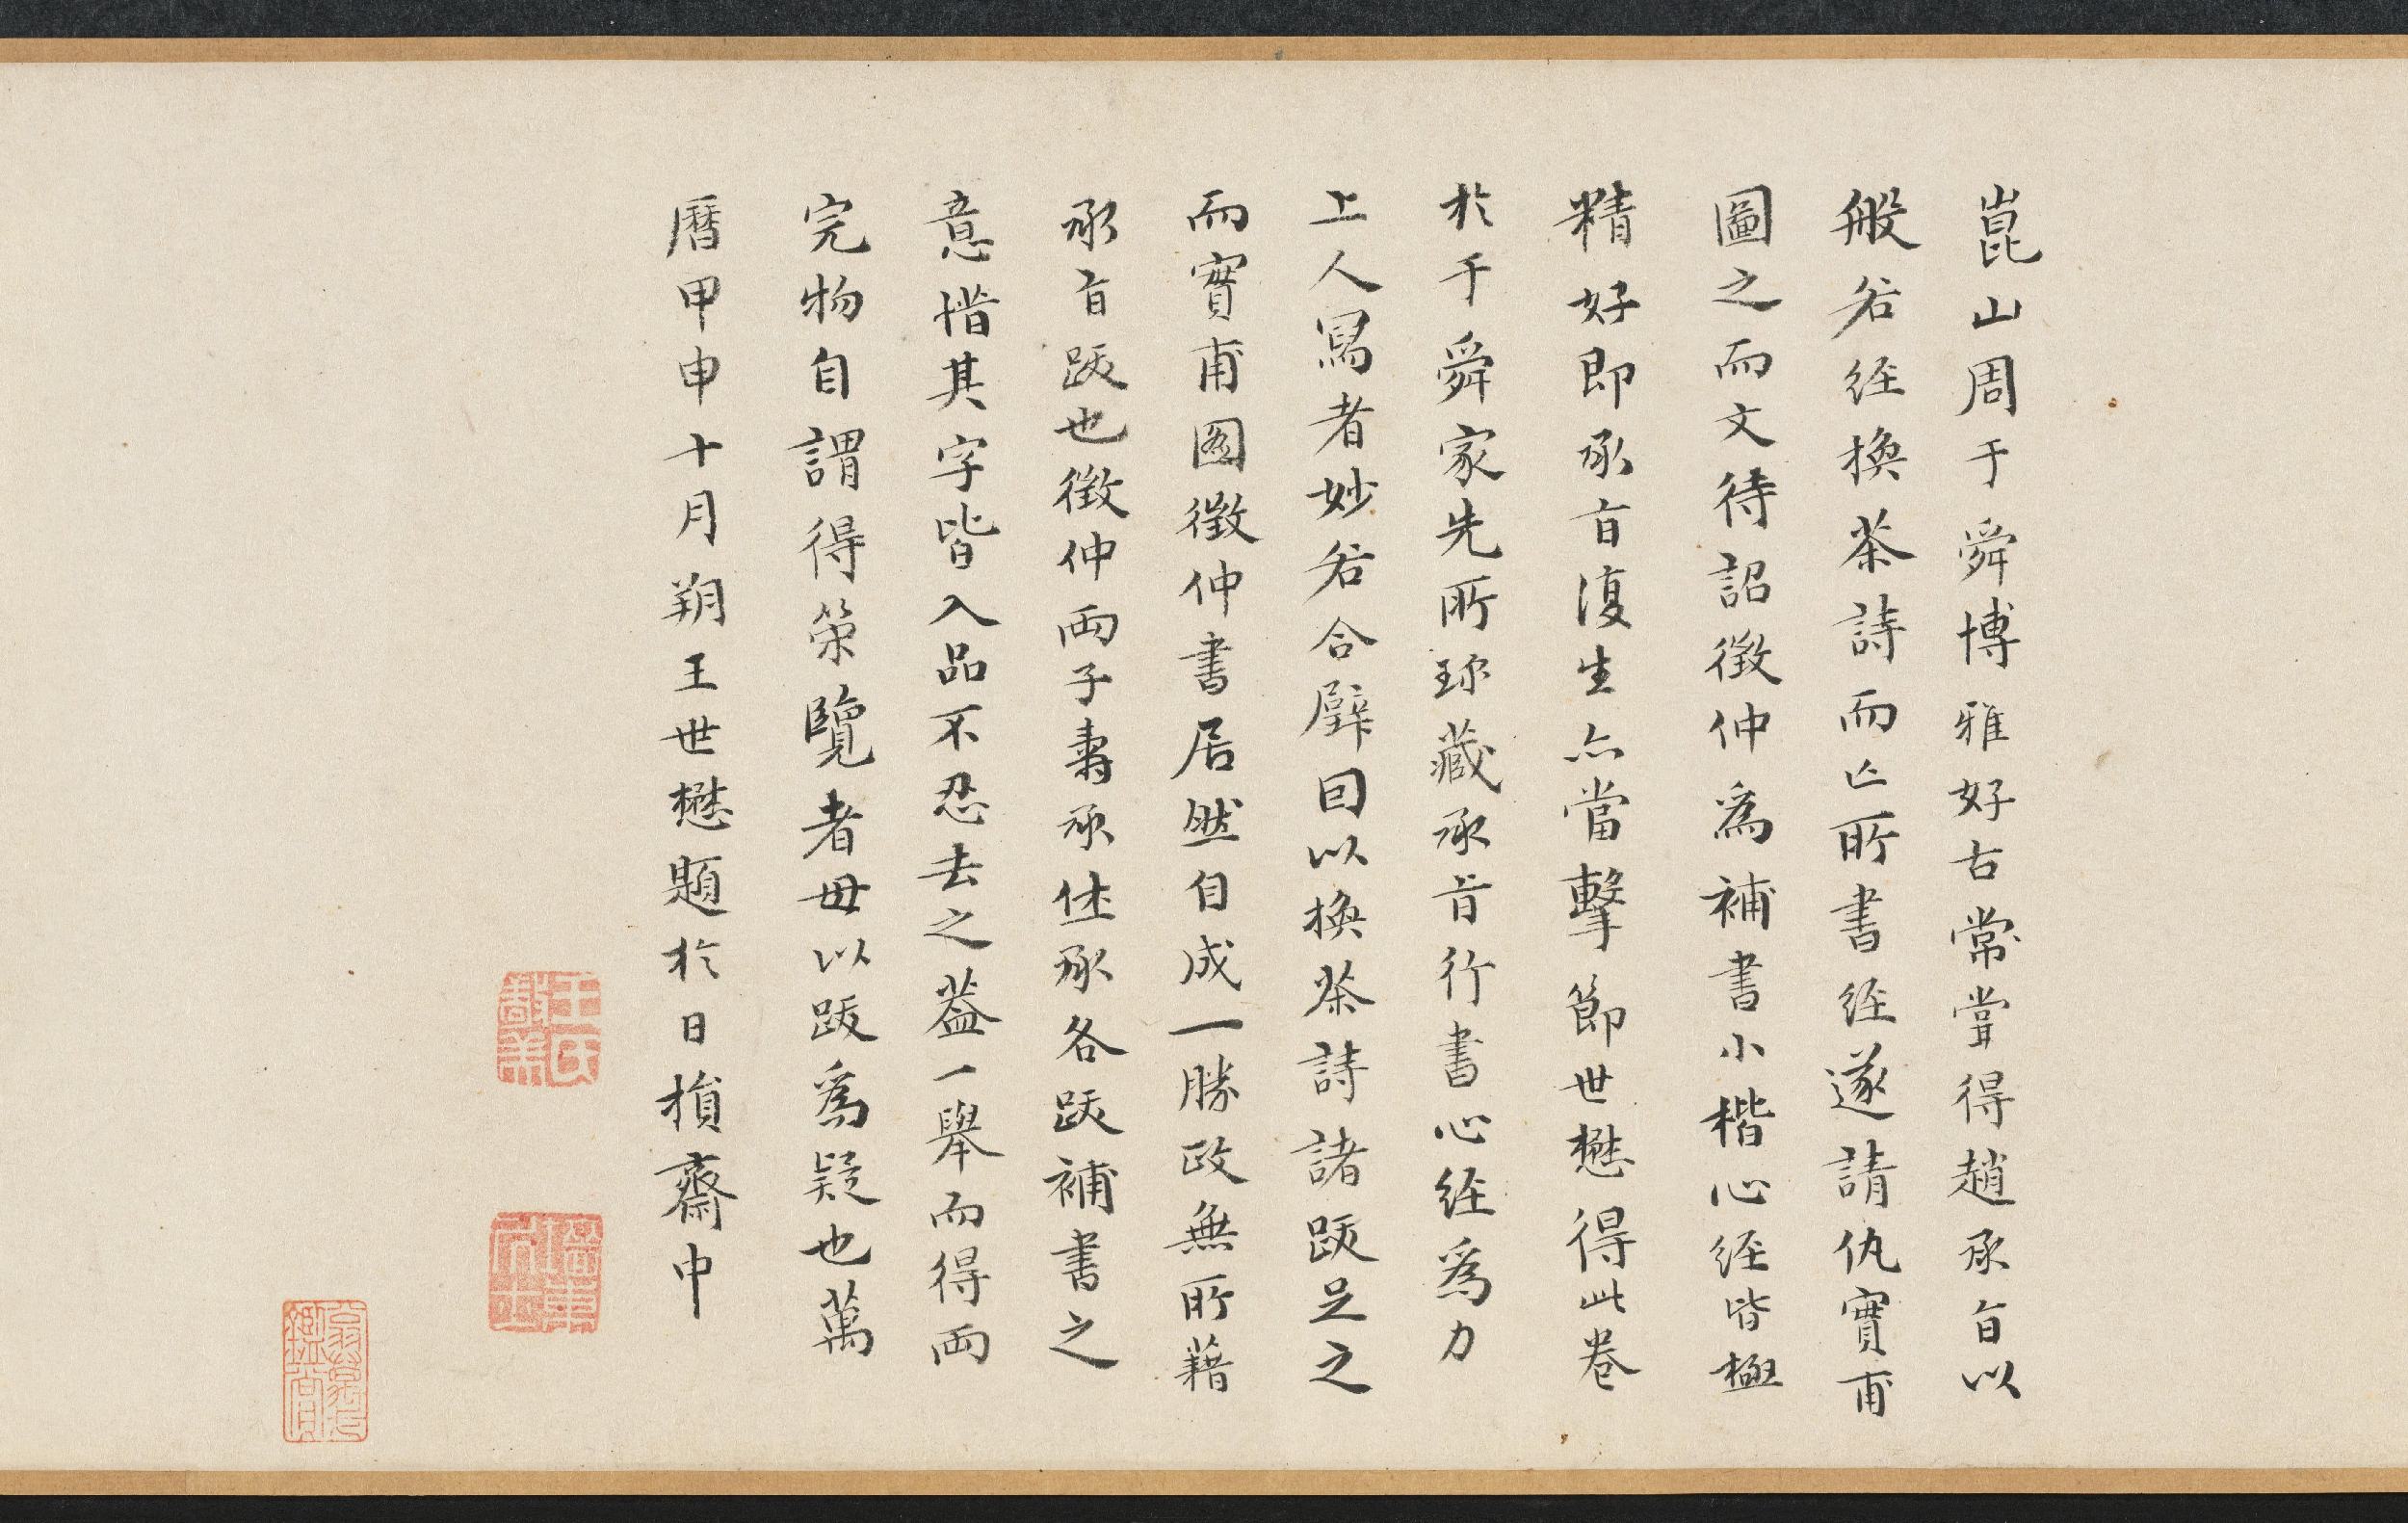 崑山周于舜博雅好古常嘗得趙承旨以
般若經換茶詩而亡所書經遂請仇實甫
圖之而文待詔徵仲為補書小楷心經皆極
精好即承旨復生亦當擊節世懋得此卷
於于舜家先所珎藏承旨行書心經為力
上人寫者妙若合璧因以換茶詩諸跋足之
而實甫圖徵仲書居然自成一勝政無所藉
承旨跋也徵仲兩子壽承休承各跋補書之
意惜其字皆入品不忍去之葢一舉而得兩
完物自謂得策覽者毋以跋為疑也萬
曆甲申十月朔王世懋題於日損齋中
王氏敬美
牆東居士
翁萬戈鑑賞